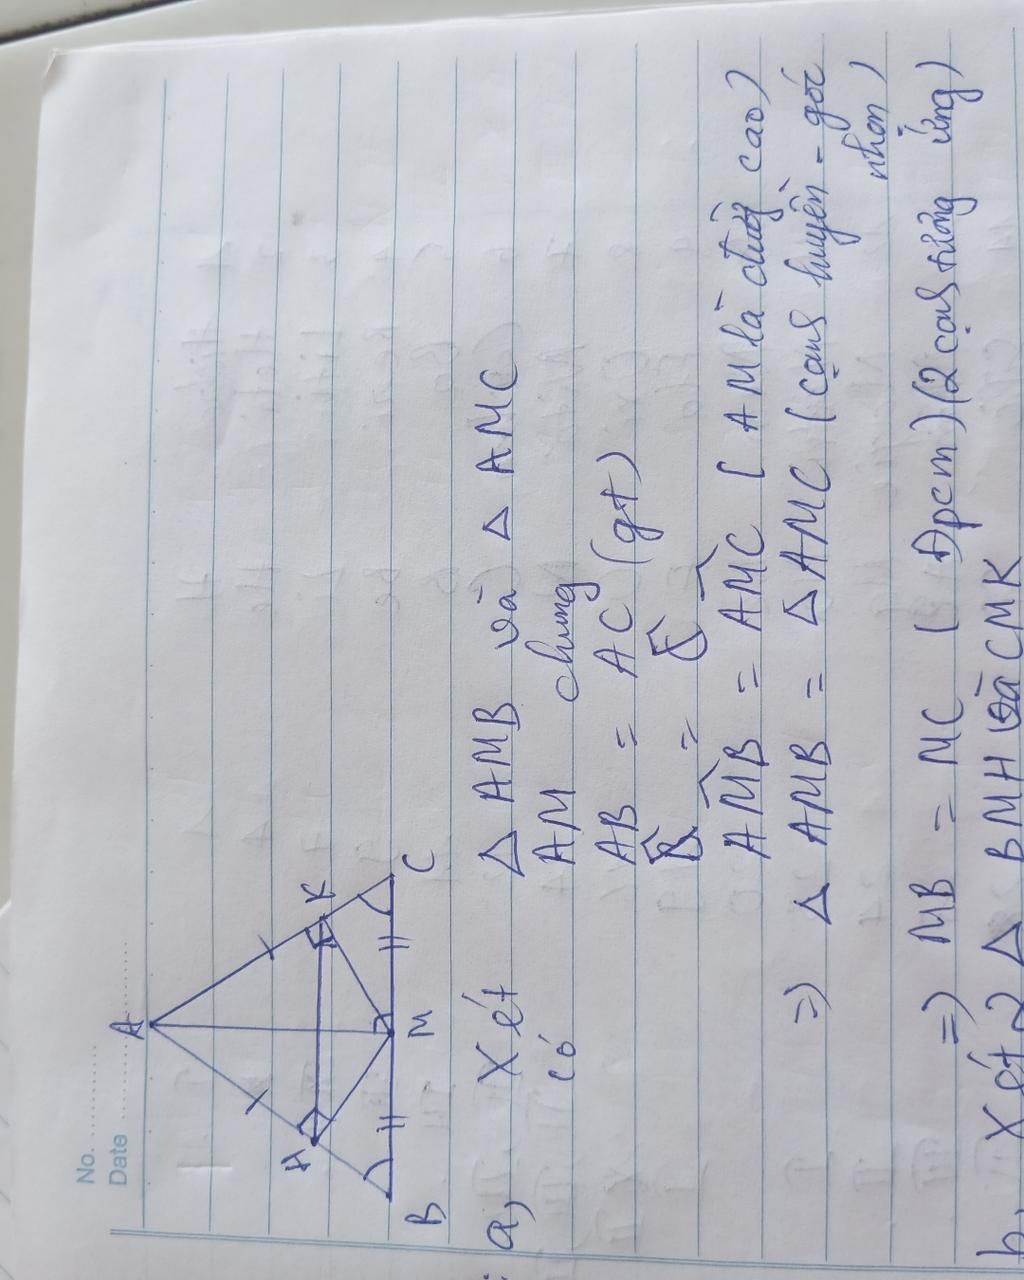 No.
Date
A
H
K
B
M
C
a, Xét △ AMB và △ AMC
có AM chung
AB = AC (gt)
=
AM̂B = AM̂C ( AM là đường cao)
=) △ AMB = △ AMC (cạnh huyền - góc
nhọn)
=) MB = MC ( Đpcm) (2 cạnh tương ứng)
b, Xét 2 △ BMH và CMK